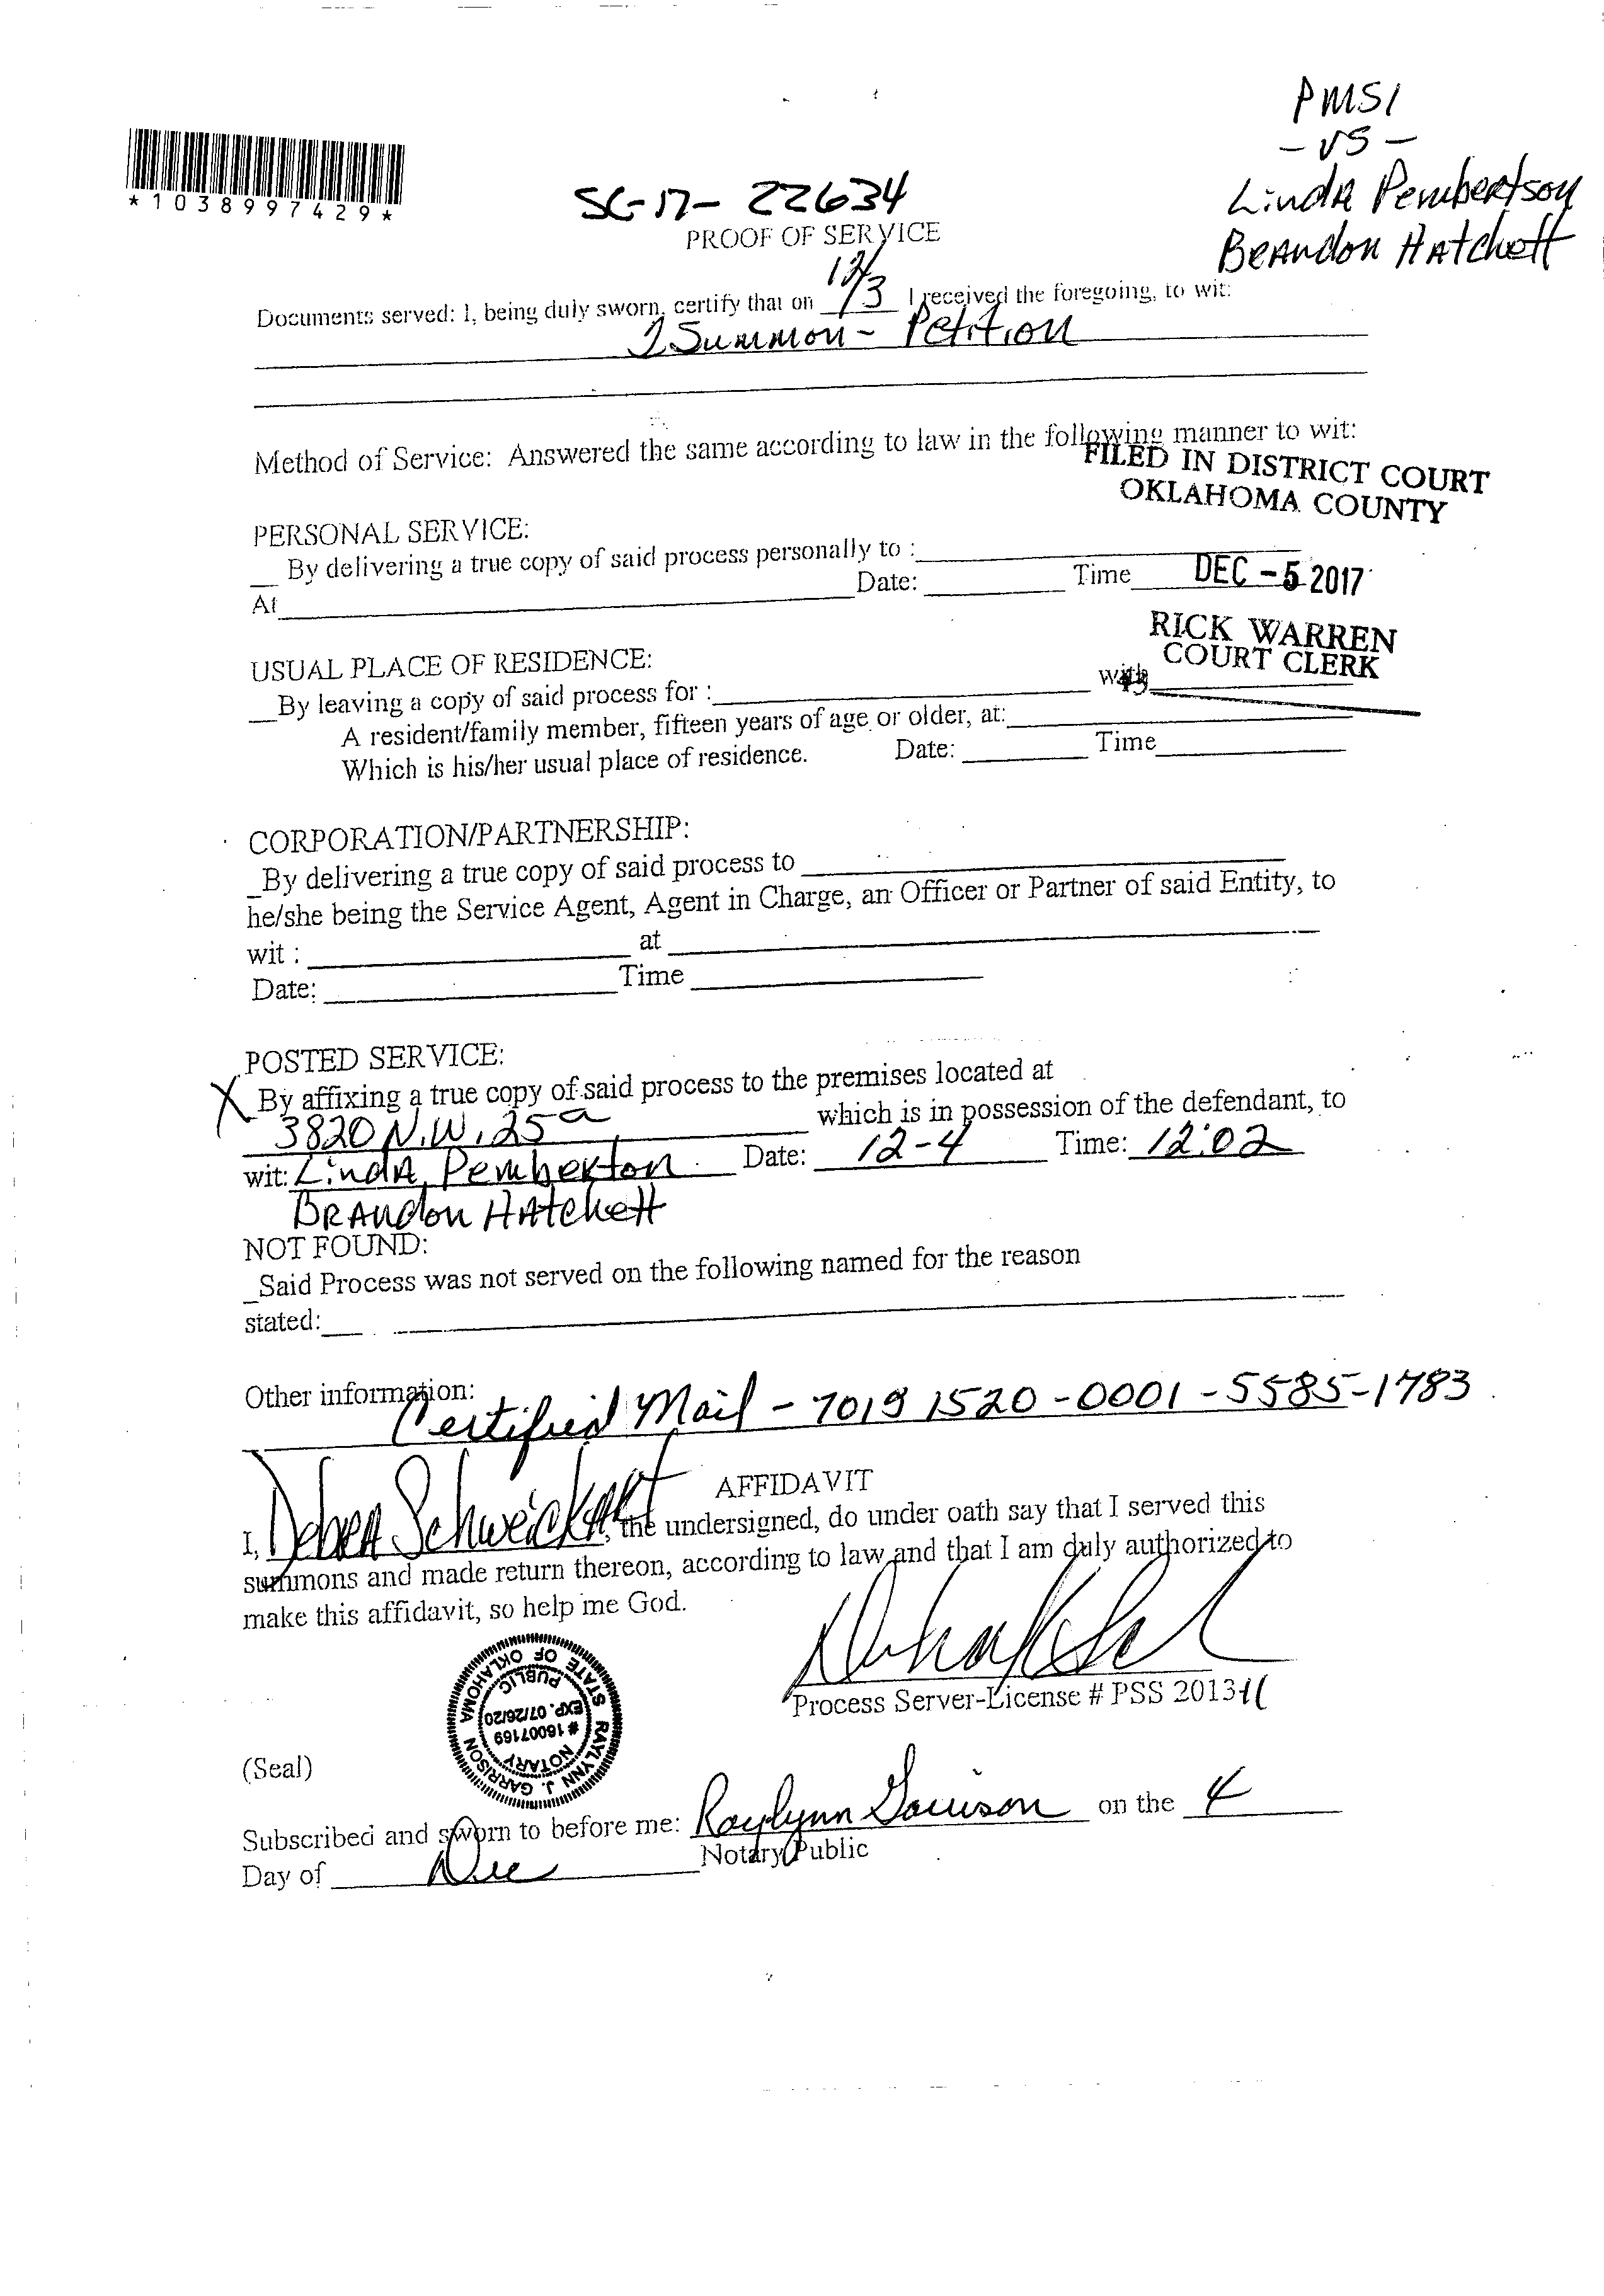 PMSI
- VS -
Linda Pembertson
Brandon Hatchett
*1038997429*
SC-17- 22634
PROOF OF SERVICE
Documents served: I, being duly sworn, certify that on 12/3 I received the foregoing, to wit:
Summon - Petition
Method of Service: Answered the same according to law in the following manner to wit:
FILED IN DISTRICT COURT
OKLAHOMA COUNTY
PERSONAL SERVICE:
__ By delivering a true copy of said process personally to :
At Date: Time
DEC - 5 2017
RICK WARREN
COURT CLERK
USUAL PLACE OF RESIDENCE:
__By leaving a copy of said process for : with
A resident/family member, fifteen years of age or older, at:
Which is his/her usual place of residence. Date: Time
CORPORATION/PARTNERSHIP:
_By delivering a true copy of said process to
he/she being the Service Agent, Agent in Charge, an Officer or Partner of said Entity, to
wit : at
Date: Time
POSTED SERVICE:
X By affixing a true copy of said process to the premises located at
3820 N.W. 25 which is in possession of the defendant, to
wit: Linda Pemberton Date: 12-4 Time: 12:02
Brandon Hatchett
NOT FOUND:
_Said Process was not served on the following named for the reason
stated:
Other information:
Certified Mail - 7019 1520-0001-5585-1783
AFFIDAVIT
I, Debra Schweickart, the undersigned, do under oath say that I served this
summons and made return thereon, according to law and that I am duly authorized to
make this affidavit, so help me God.
Process Server-License # PSS 2013-11
RAYLYNN J. GARRISON
STATE OF OKLAHOMA
NOTARY
# 16007169
EXP. 07/26/20
PUBLIC
(Seal)
Subscribed and sworn to before me: Raylynn Garrison on the 4
Notary Public
Day of Dec